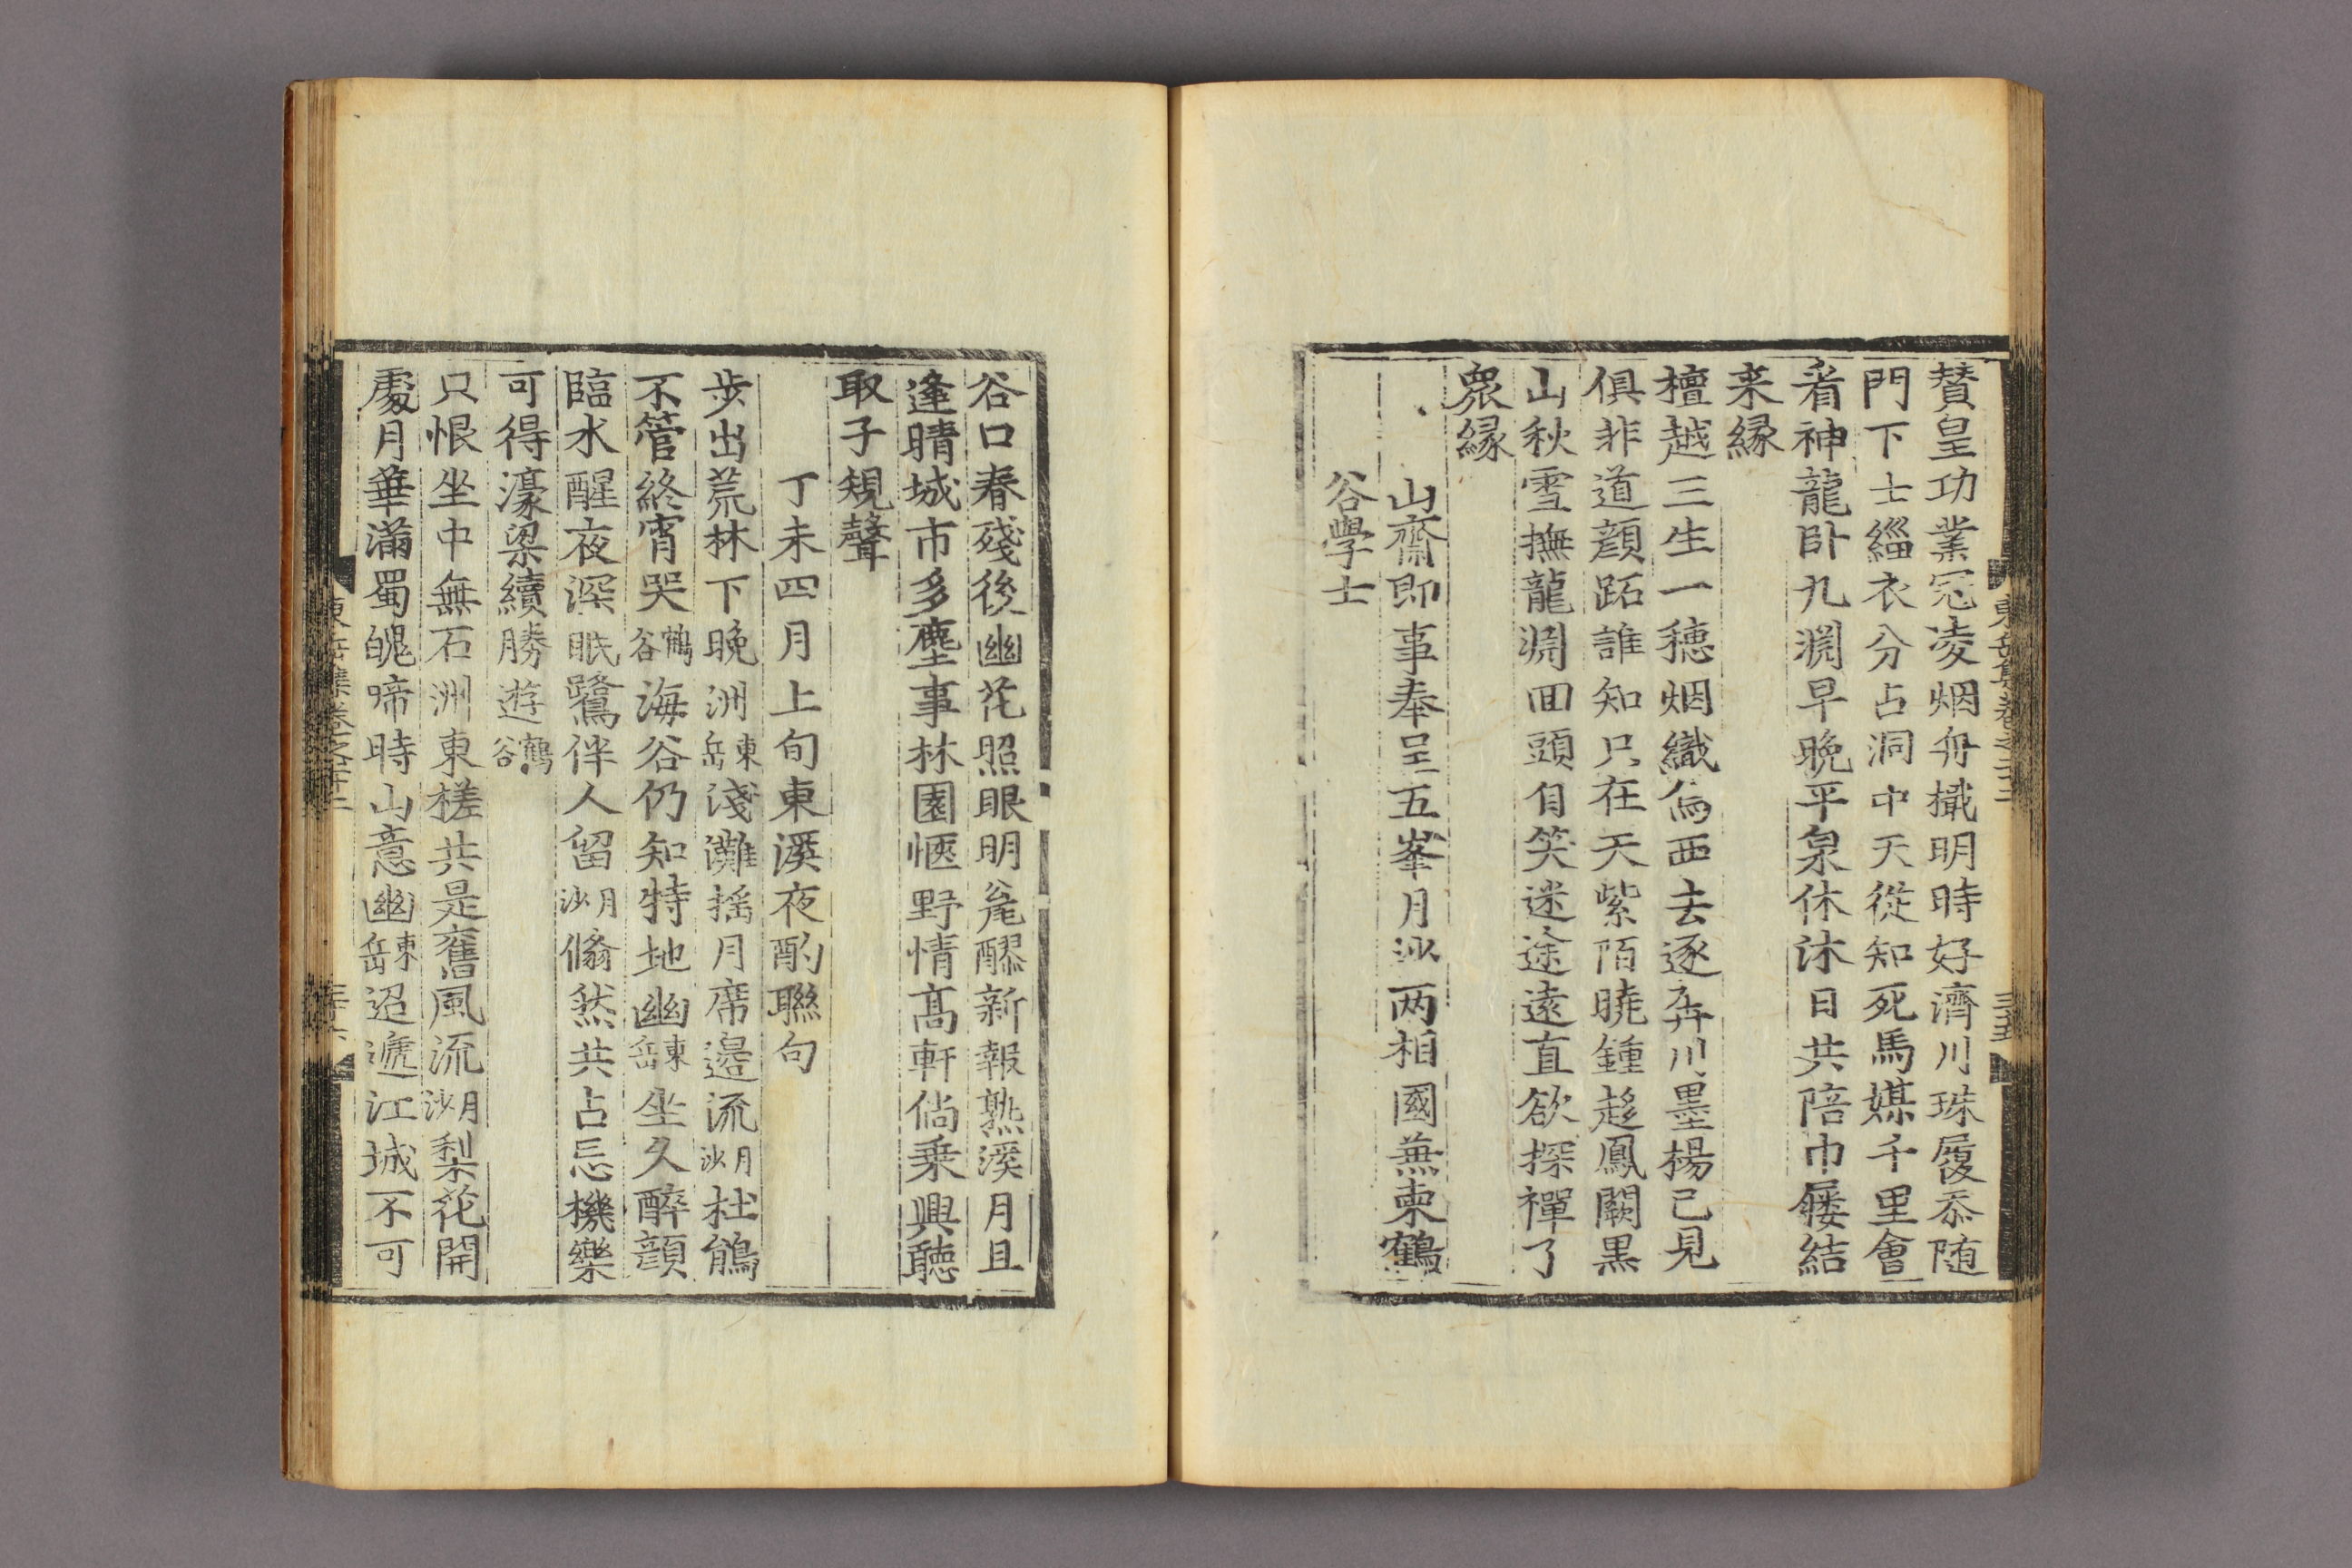 賛皇功業冠凌烟舟檝明時好濟川珠履忝随
門下士緇衣分占洞中天從知死馬媒千里會
看神龍卧九淵早晩平泉休沐日共陪巾屨結
来縁
檀越三生一穗烟纖伔西去逐奔川墨楊已見
俱非道顔跖誰知只在天紫陌曉鍾趍鳳闕黒
山秋雪撫龍淵回頭自笑迷途遠直欲探禪了
衆縁
山齋即事奉呈五峯月沙两相國兼柬鶴
谷學士
東岳集卷之二十二
三十五
谷口春殘後幽花照眼明瓮醪新報熟溪月且
逢晴城市多塵事林園愜野情高軒倘乗興聽
取子規聲
丁未四月上旬東溪夜酌聯句
步出荒林下晩洲東岳淺灘揺月席邊流月沙杜鵑
不管終宵哭鶴谷海谷仍知特地幽東岳坐久醉顔
臨水醒夜深眠鷺伴人留月沙翛然共占忘機樂
可得濠梁續勝遊鶴谷
只恨坐中無石洲東槎共是舊風流月沙梨花開
處月華滿蜀魄啼時山意幽東岳迢遞江城不可
東岳集卷之二十二
三十六